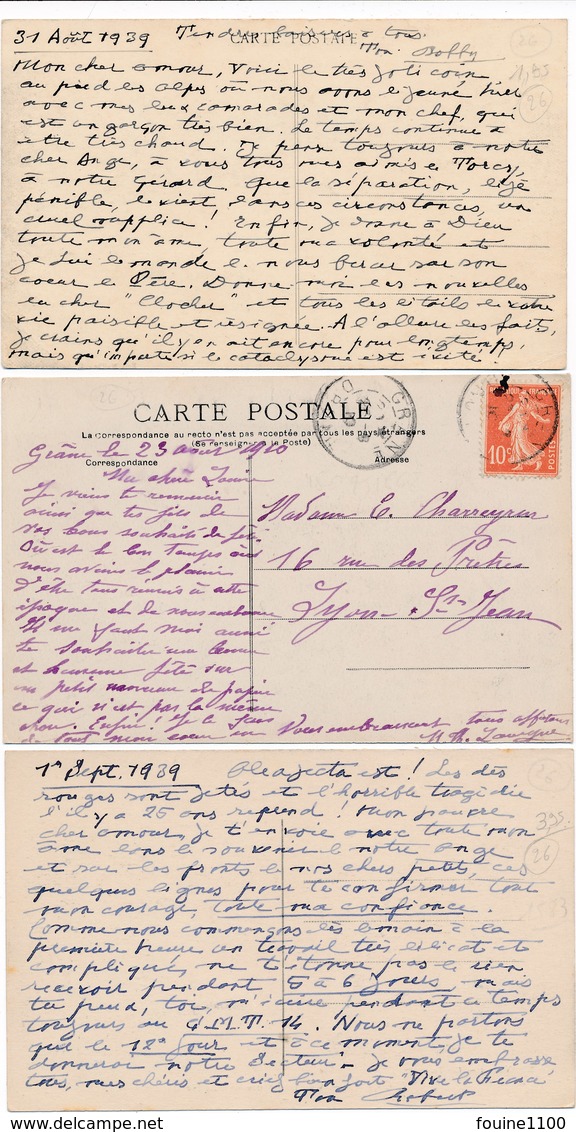 31 Août 1939 Tendres baisers à tous.
CARTE POSTALE Ton Bobby
Mon cher amour, Voici le très joli coin,
au pied des alpes où nous avons déjeuné hier
avec mes deux camarades et mon chef, qui
est un garçon très bien. Le temps continue à
être très chaud. Je pense toujours à notre
cher Ange, à vous tous mes aimés de Torcy,
à notre Gérard. Que la séparation, déjà
pénible, devient, dans ces circonstances, un
cruel supplice! Enfin, je donne à Dieu
toute mon âme, toute ma volonté et
je lui demande de nous bercer sur son
coeur de Père. Donne moi des nouvelles
du cher "Clocher" et tous les détails de votre
vie paisible et résignée. A l'allure des faits,
je crains qu'il y en ait encore pour longtemps,
mais qu'importe si le cataclysme est évité!
26
1,95
26
CARTE POSTALE
La Correspondance au recto n'est pas acceptée par tous les pays étrangers
(Se renseigner à la Poste)
Correspondance Adresse
Grâne le 23 1910
Ma chère
Je viens te remercier
ainsi que tes fils de
vos bons souhaits de fête.
Où est le bon temps où
nous avions le plaisir
d'être tous réunis à cette
époque et de nous embrasser
Il me faut moi aussi
te souhaiter une bonne
et heureuse fête sur
un petit morceau de papier
ce qui n'est pas la même
chose. Enfin! Je le fais
de tout mon coeur en Vous embrassant tous
Madame E. Charreyron
16 rue des Prêtres
Lyon-St-Jean
10c
POSTES
1er Sept. 1939 Alea jecta est! Les dés
rouges sont jetés et l'horrible tragédie
d'il y a 25 ans reprend! Mon pauvre
cher amour, je t'envoie avec toute mon
âme dans le souvenir de notre ange
et sur les fronts de nos chers petits, ces
quelques lignes pour te confirmer tout
mon courage, toute ma confiance.
Comme nous commençons dès demain à la
première heure un travail très délicat et
compliqué, ne t'étonne pas de rien
recevoir pendant 5 à 6 jours, mais
tu peux, toi, m'écrire pendant ce temps
toujours au G.M.T. 14. Nous ne partons
que le 12e jour et à ce moment, je te
donnerai notre Secteur. Je vous embrasse
tous, mes chéris et criez bien fort "Vive la France"
Ton Robert
26
3,95
26
www.delcampe.net fouine1100